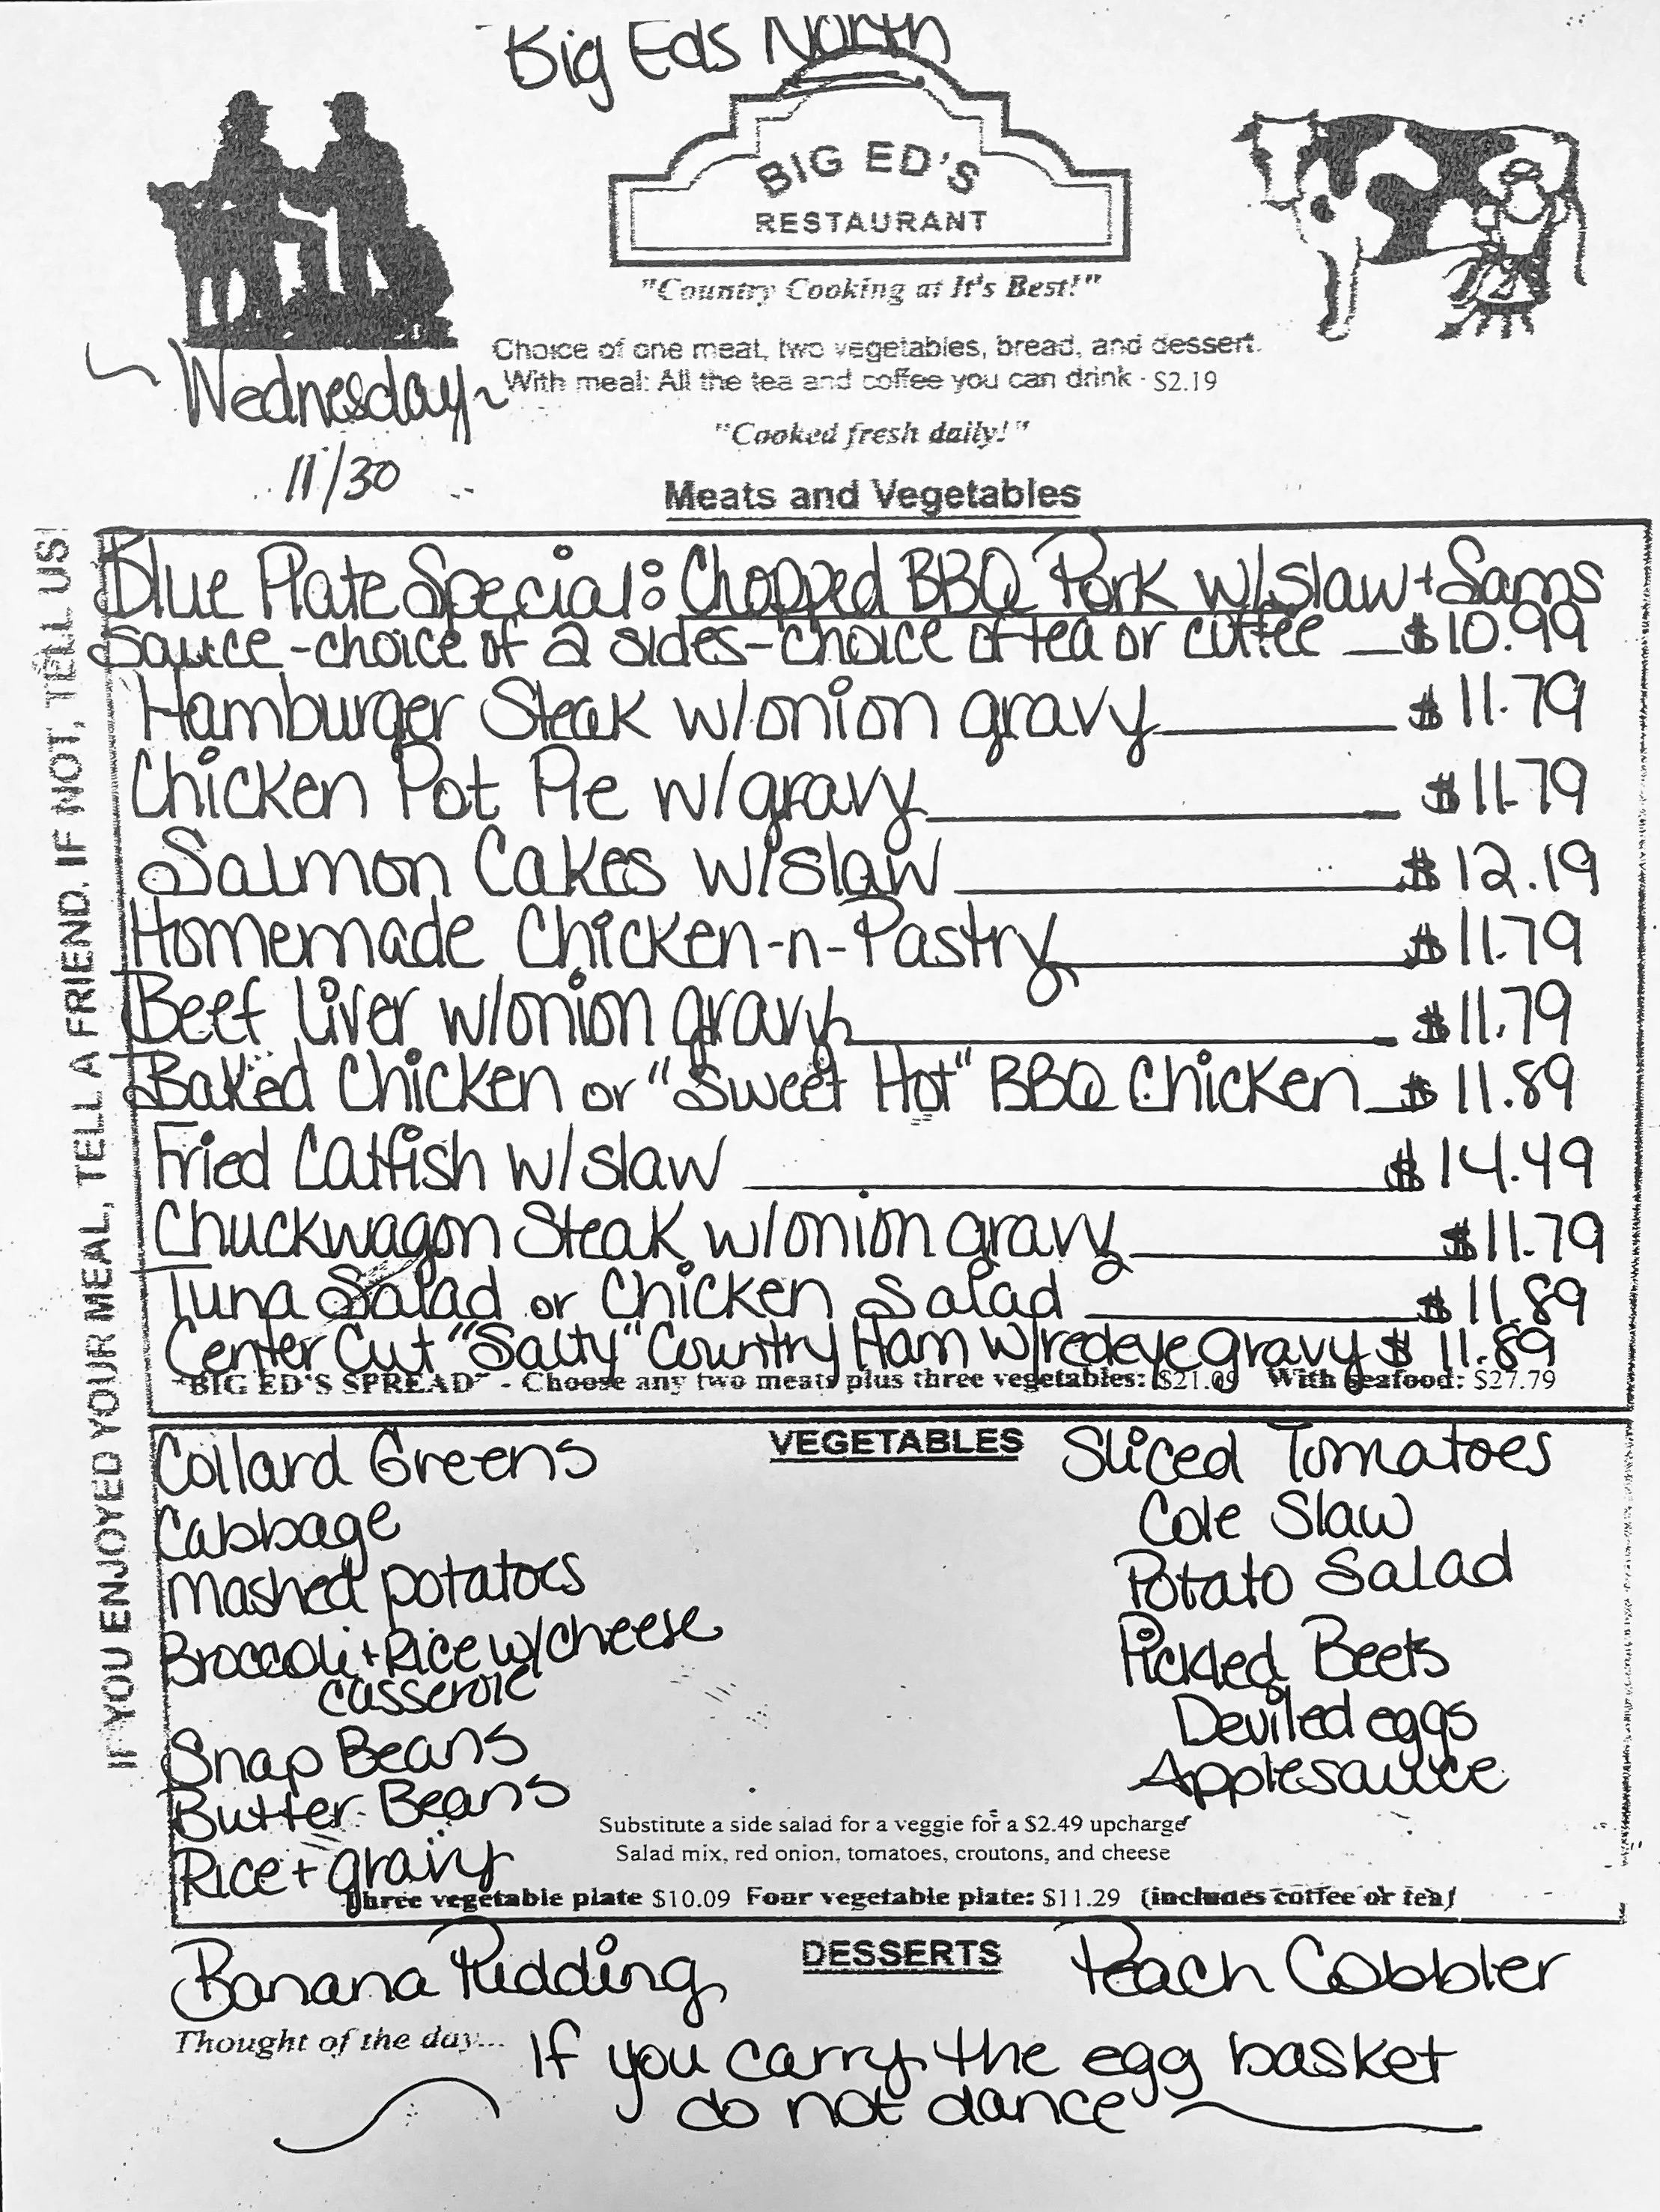 Big Eds North
BIG ED'S
RESTAURANT
"Country Cooking at It's Best!"
Choice of one meat, two vegetables, bread, and dessert.
With meal: All the tea and coffee you can drink - $2.19
"Cooked fresh daily!"
Wednesday
11/30
Meats and Vegetables
IF YOU ENJOYED YOUR MEAL, TELL A FRIEND. IF NOT, TELL US!
Blue Plate Special: Chopped BBQ Pork w/slaw + Sams
sauce - choice of 2 sides - choice of tea or coffee $10.99
Hamburger Steak w/onion gravy $11.79
Chicken Pot Pie w/gravy $11.79
Salmon Cakes w/slaw $12.19
Homemade Chicken-n-Pastry $11.79
Beef Liver w/onion gravy $11.79
Baked Chicken or "Sweet Hot" BBQ Chicken $11.89
Fried Catfish w/slaw $14.49
Chuckwagon Steak w/onion gravy $11.79
Tuna Salad or Chicken Salad $11.89
Center Cut "Salty" Country Ham w/redeye gravy $11.89
"BIG ED'S SPREAD" - Choose any two meats plus three vegetables: $21.09 With seafood: $27.79
VEGETABLES
Collard Greens
Cabbage
Mashed potatoes
Broccoli + Rice w/cheese
casserole
Snap Beans
Butter Beans
Rice + gravy
Sliced Tomatoes
Cole Slaw
Potato Salad
Pickled Beets
Deviled eggs
Applesauce
Substitute a side salad for a veggie for a $2.49 upcharge
Salad mix, red onion, tomatoes, croutons, and cheese
Three vegetable plate $10.09 Four vegetable plate: $11.29 (includes coffee or tea)
DESSERTS
Banana Pudding
Peach Cobbler
Thought of the day... If you carry the egg basket
do not dance